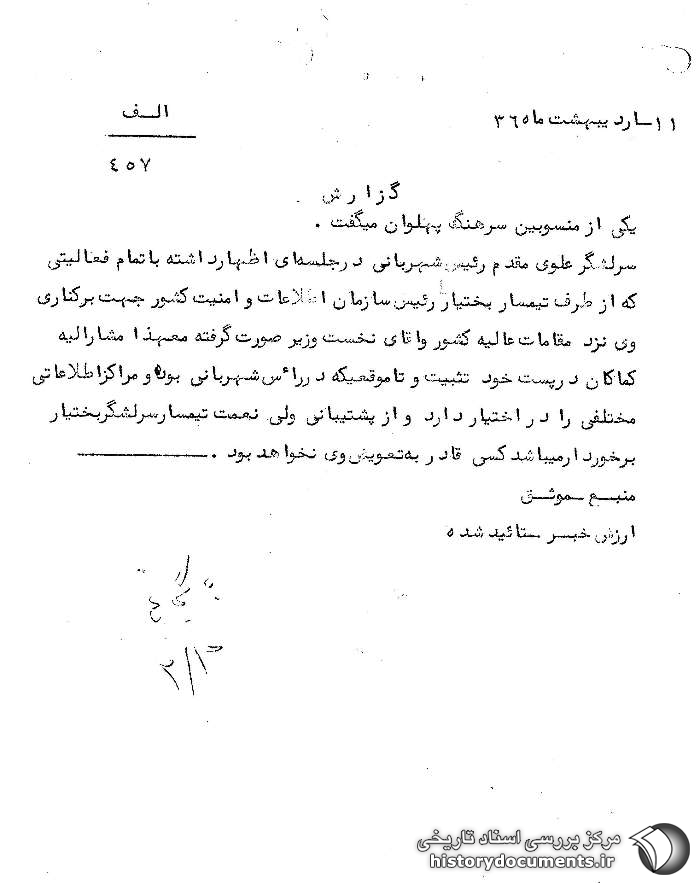 ۱۱-اردیبهشت ماه ۳۶
الــف
۴۵۷
گزارش
یکی از منسوبین سرهنگ پهلوان میگفت .
سرلشگر علوی مقدم رئیس شهربانی در جلسه‌ای اظهار داشته با تمام فعالیتی
که از طرف تیمسار بختیار رئیس سازمان اطلاعات و امنیت کشور جهت برکناری
وی نزد مقامات عالیه کشور و اقای نخست وزیر صورت گرفته معهذا مشارالیه
کماکان در پست خود تثبیت و تا موقعیکه در رأس شهربانی بوده و مراکز اطلاعاتی
مختلفی را در اختیار دارد و از پشتیبانی ولی نعمت تیمسار سرلشگر بختیار
برخوردار میباشد کسی قادر به تعویض وی نخواهد بود .
منبع - موثق
ارزش خبر - تائید شده
۲/۱۵
مرکز بررسی اسناد تاریخی
historydocuments.ir